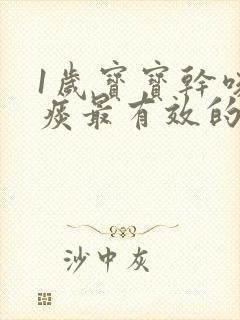 1歲寶寶幹咳
痰最有效的
沙中灰